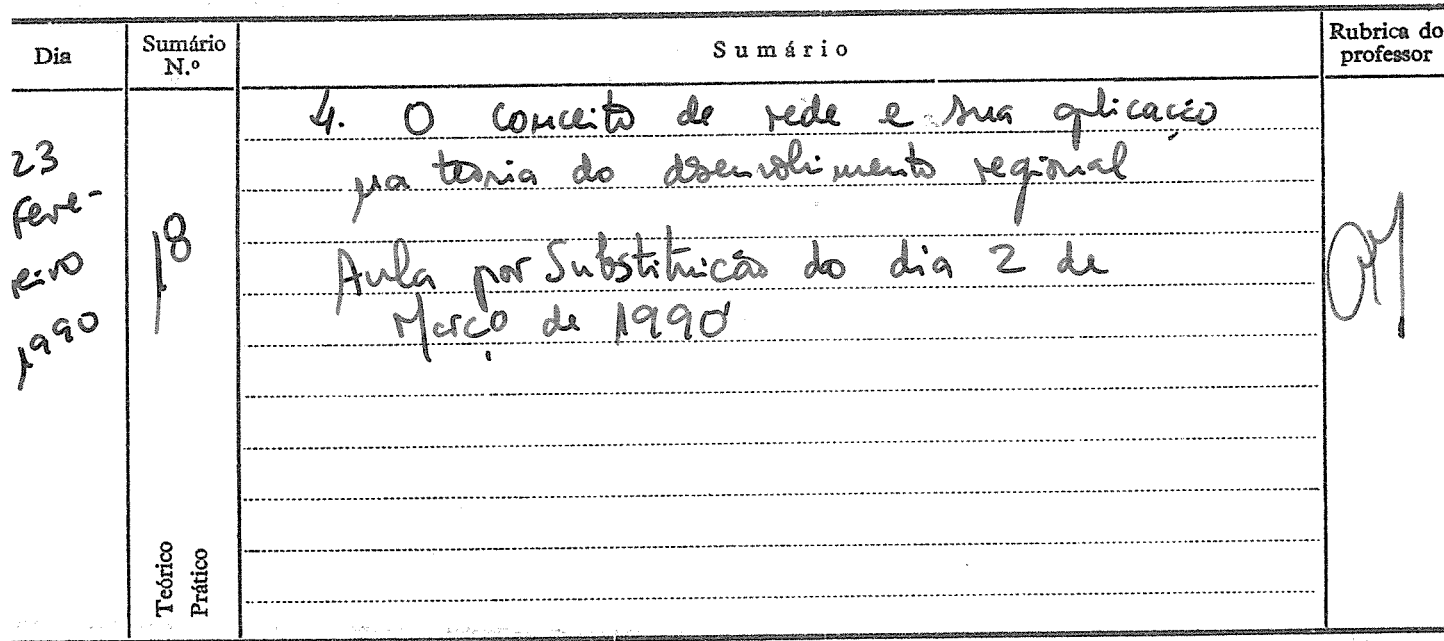 Dia
Sumário
N.º
Sumário
Rubrica do
professor
23
Feve-
reiro
1990
18
4. O conceito de rede e sua aplicação
na teoria do desenvolvimento regional
Aula por Substituição do dia 2 de
Março de 1990
Teórico
Prático